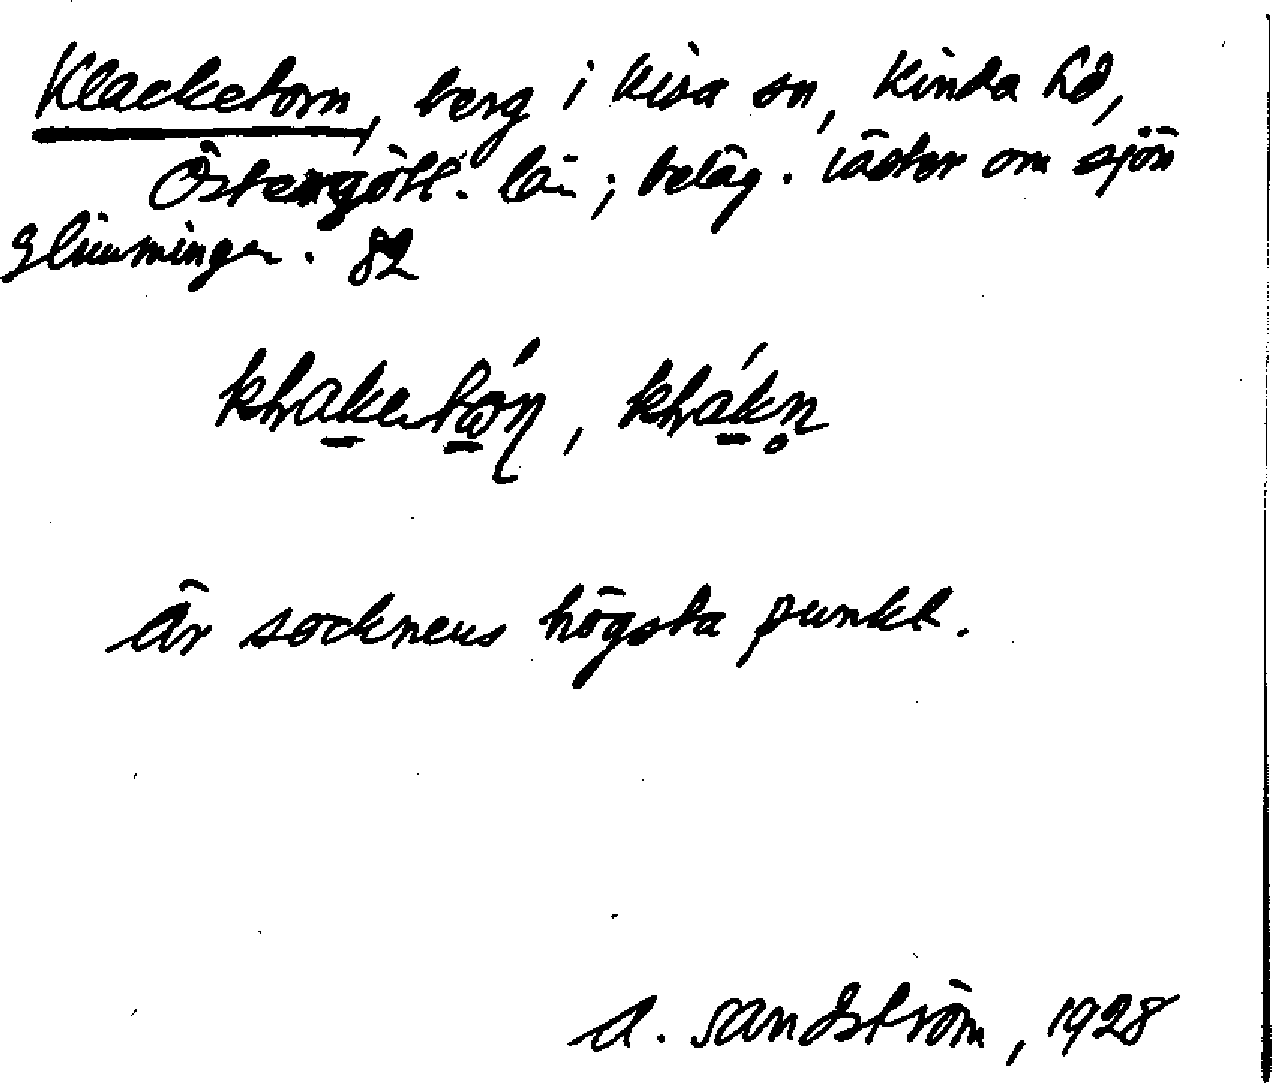 Klacketorn, berg i Kisa sn, Kinda hd,
Östergötl. län; beläg. väster om sjön
Glimmingen. 82
Är socknens högsta punkt.
A. Sandström, 1928